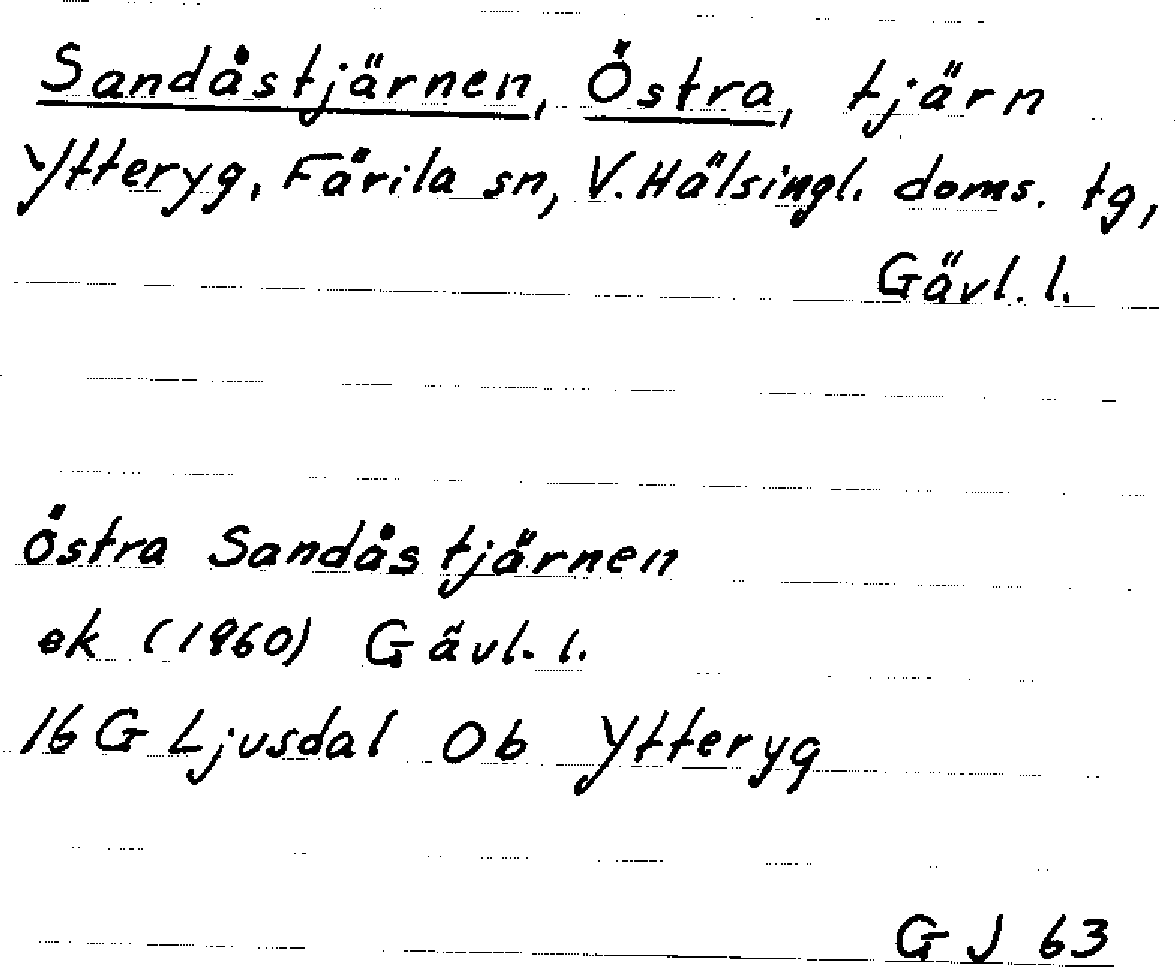 Sandåstjärnen, Östra, tjärn
Ytteryg, Färila sn, V. Hälsingl. doms. tg,
Gävl. l.
Östra Sandåstjärnen
ek (1960) Gävl. l.
16 G Ljusdal 0b Ytteryg
G J 63